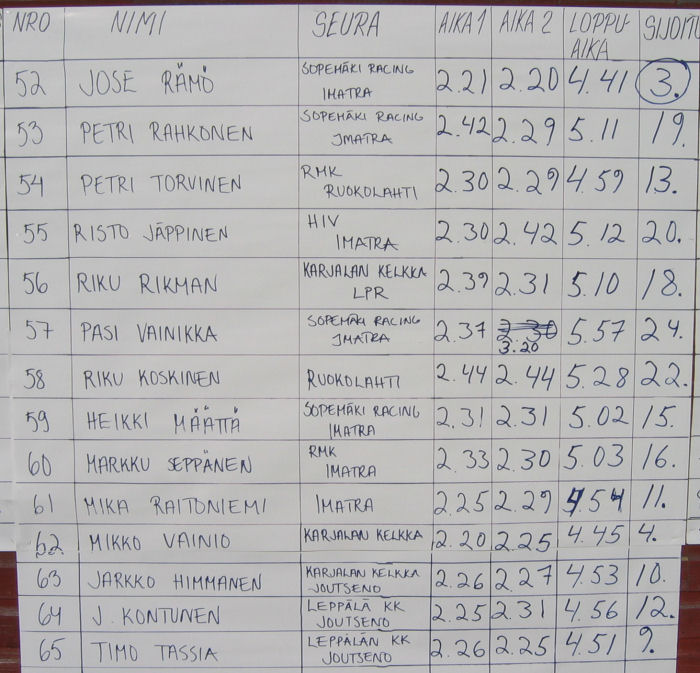 NRO NIMI SEURA AIKA 1 AIKA 2 LOPPU- SIJOITU
AIKA
52 JOSE RÄMÖ SOPEMÄKI RACING 2.21 2.20 4.41 3.
IMATRA
53 PETRI RAHKONEN SOPEMÄKI RACING 2.42 2.29 5.11 19.
IMATRA
54 PETRI TORVINEN RMK 2.30 2.29 4.59 13.
RUOKOLAHTI
55 RISTO JÄPPINEN HIV 2.30 2.42 5.12 20.
IMATRA
56 RIKU RIKMAN KARJALAN KELKKA 2.39 2.31 5.10 18.
LPR
57 PASI VAINIKKA SOPEMÄKI RACING 2.37 2.30 5.57 24.
IMATRA 3.20
58 RIKU KOSKINEN RUOKOLAHTI 2.44 2.44 5.28 22.
59 HEIKKI MÄÄTTÄ SOPEMÄKI RACING 2.31 2.31 5.02 15.
IMATRA
60 MARKKU SEPPÄNEN RMK 2.33 2.30 5.03 16.
IMATRA
61 MIKA RAITONIEMI IMATRA 2.25 2.29 4.54 11.
62 MIKKO VAINIO KARJALAN KELKKA 2.20 2.25 4.45 4.
63 JARKKO HIMMANEN KARJALAN KELKKA 2.26 2.27 4.53 10.
JOUTSENO
64 J. KONTUNEN LEPPÄLÄ KK 2.25 2.31 4.56 12.
JOUTSENO
65 TIMO TASSIA LEPPÄLÄN KK 2.26 2.25 4.51 9.
JOUTSENO